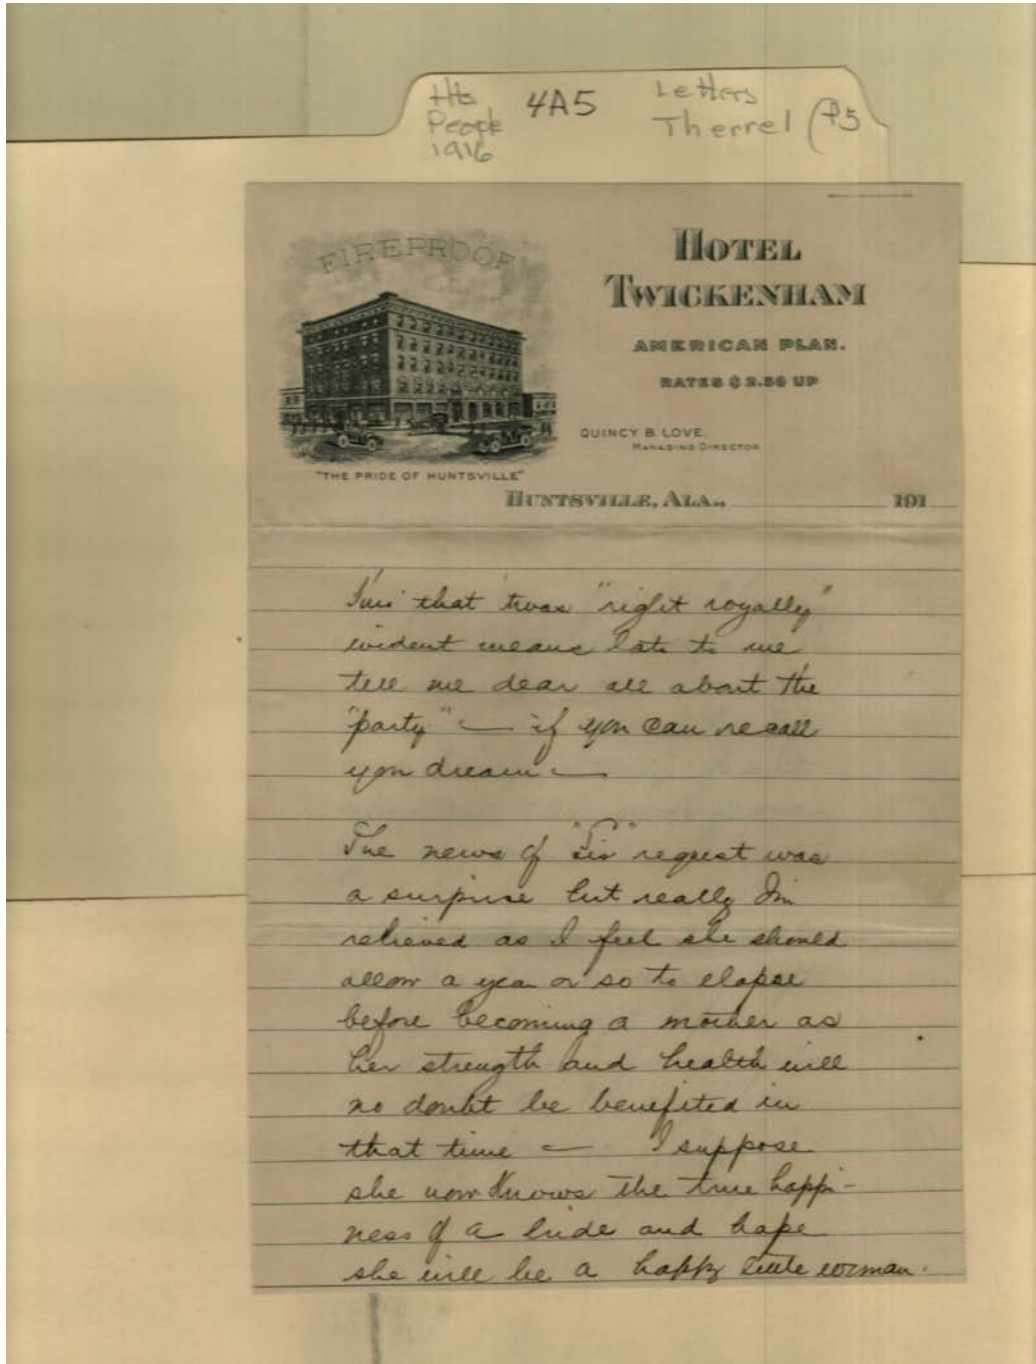 Hts 4A5 Letters
People Therrel (P5
1916
FIREPROOF
HOTEL
TWICKENHAM
AMERICAN PLAN.
RATES $2.50 UP
QUINCY B. LOVE,
MANAGING DIRECTOR
"THE PRIDE OF HUNTSVILLE"
HUNTSVILLE, ALA., 191
that twas "right royally"
evident means late to me
tell me dear all about the
"party" — if you can recall
you dream —
The news of "Sis" request was
a surprise but really I'm
relieved as I feel she should
allow a year or so to elapse
before becoming a mother as
her strength and health will
no doubt be benefited in
that time — I suppose
she now knows the true happi-
ness of a bride and hope
she will be a happy little woman.